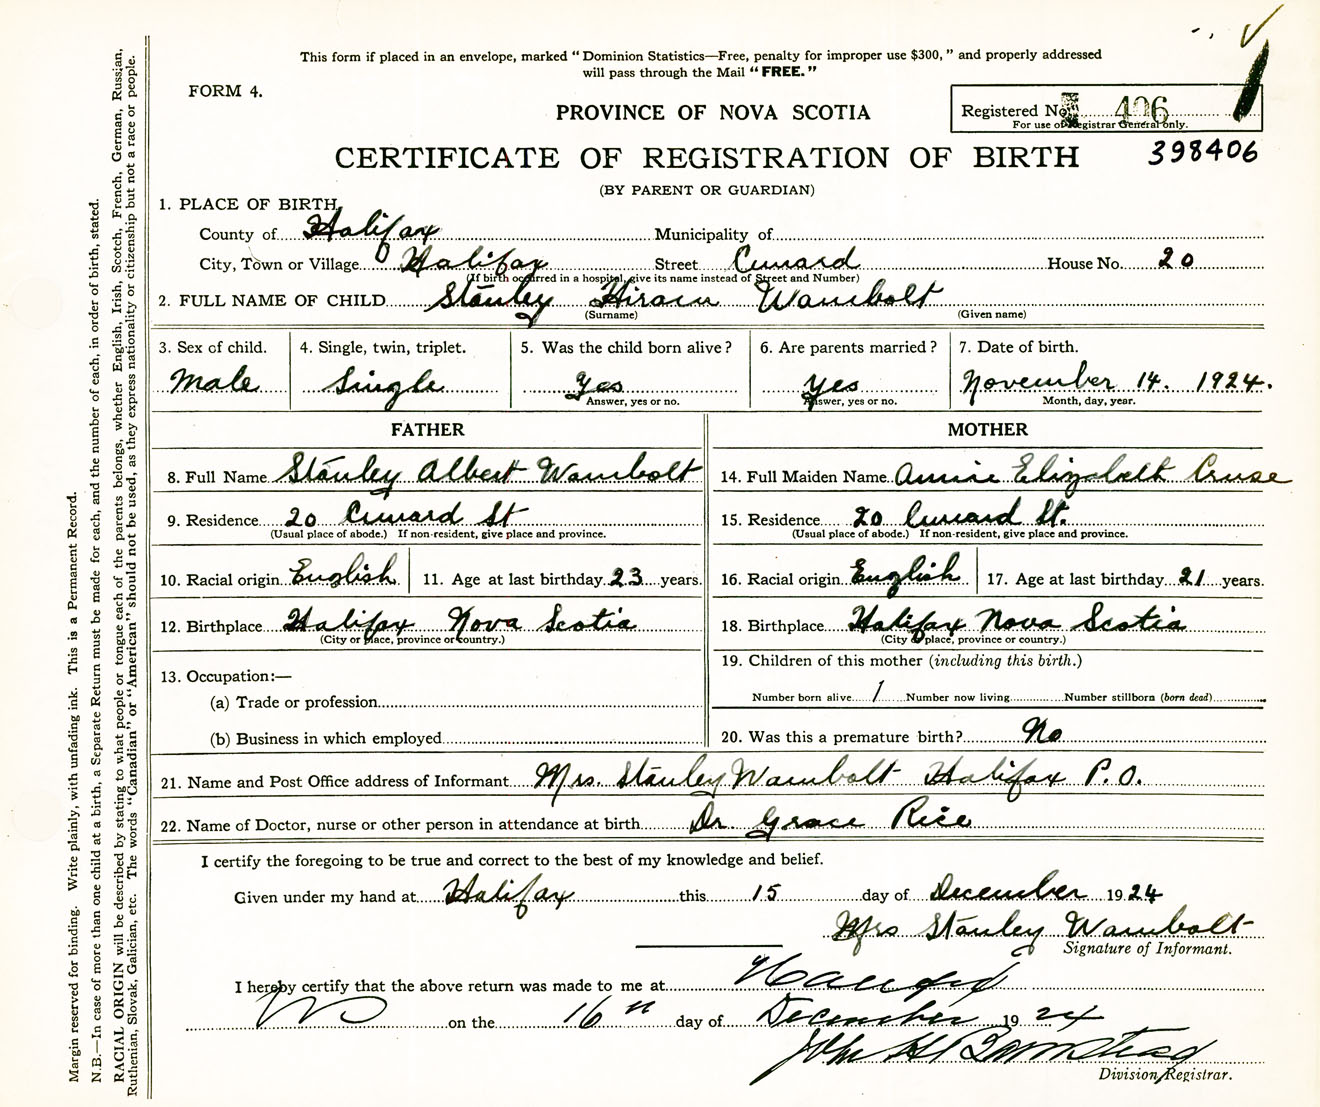 This form if placed in an envelope, marked "Dominion Statistics—Free, penalty for improper use $300," and properly addressed
will pass through the Mail "FREE."
FORM 4.
PROVINCE OF NOVA SCOTIA
Registered No. 406
For use of Registrar General only.
CERTIFICATE OF REGISTRATION OF BIRTH
398406
(BY PARENT OR GUARDIAN)
1. PLACE OF BIRTH,
County of Halifax Municipality of
City, Town or Village Halifax Street Cunard House No. 20
(If birth occurred in a hospital, give its name instead of Street and Number)
2. FULL NAME OF CHILD Stanley Hiram Wambolt
(Surname) (Given name)
3. Sex of child. 4. Single, twin, triplet. 5. Was the child born alive? 6. Are parents married? 7. Date of birth.
Male Single Yes Yes November 14. 1924.
Answer, yes or no. Answer, yes or no. Month, day, year.
FATHER MOTHER
8. Full Name Stanley Albert Wambolt 14. Full Maiden Name Annie Elizabeth Cruse
9. Residence 20 Cunard St 15. Residence 20 Cunard St.
(Usual place of abode.) If non-resident, give place and province. (Usual place of abode.) If non-resident, give place and province.
10. Racial origin English 11. Age at last birthday 23 years. 16. Racial origin English 17. Age at last birthday 21 years.
12. Birthplace Halifax Nova Scotia 18. Birthplace Halifax Nova Scotia
(City or place, province or country.) (City or place, province or country.)
13. Occupation:— 19. Children of this mother (including this birth.)
(a) Trade or profession Number born alive 1 Number now living Number stillborn (born dead)
(b) Business in which employed 20. Was this a premature birth? No
21. Name and Post Office address of Informant Mrs. Stanley Wambolt Halifax P.O.
22. Name of Doctor, nurse or other person in attendance at birth Dr Grace Rice
I certify the foregoing to be true and correct to the best of my knowledge and belief.
Given under my hand at Halifax this 15 day of December 1924
Mrs Stanley Wambolt
Signature of Informant.
I hereby certify that the above return was made to me at Halifax
on the 16 day of December 1924
John H
Division Registrar.
Margin reserved for binding. Write plainly, with unfading ink. This is a Permanent Record.
N.B.—In case of more than one child at a birth, a Separate Return must be made for each, and the number of each, in order of birth, stated.
RACIAL ORIGIN will be described by stating to what people or tongue each of the parents belongs, whether English, Irish, Scotch, French, German, Russian,
Ruthenian, Slovak, Galician, etc. The words "Canadian" or "American" should not be used, as they express nationality or citizenship but not a race or people.